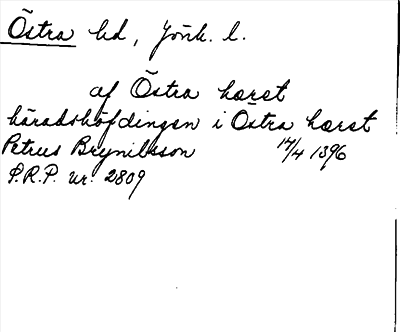 Östra hd, Jönk. l.
af Östra hæret
häradshöfdingen i Östra hæret
Petrus Brynilsson 14/4 1396
S.R.P. nr. 2809